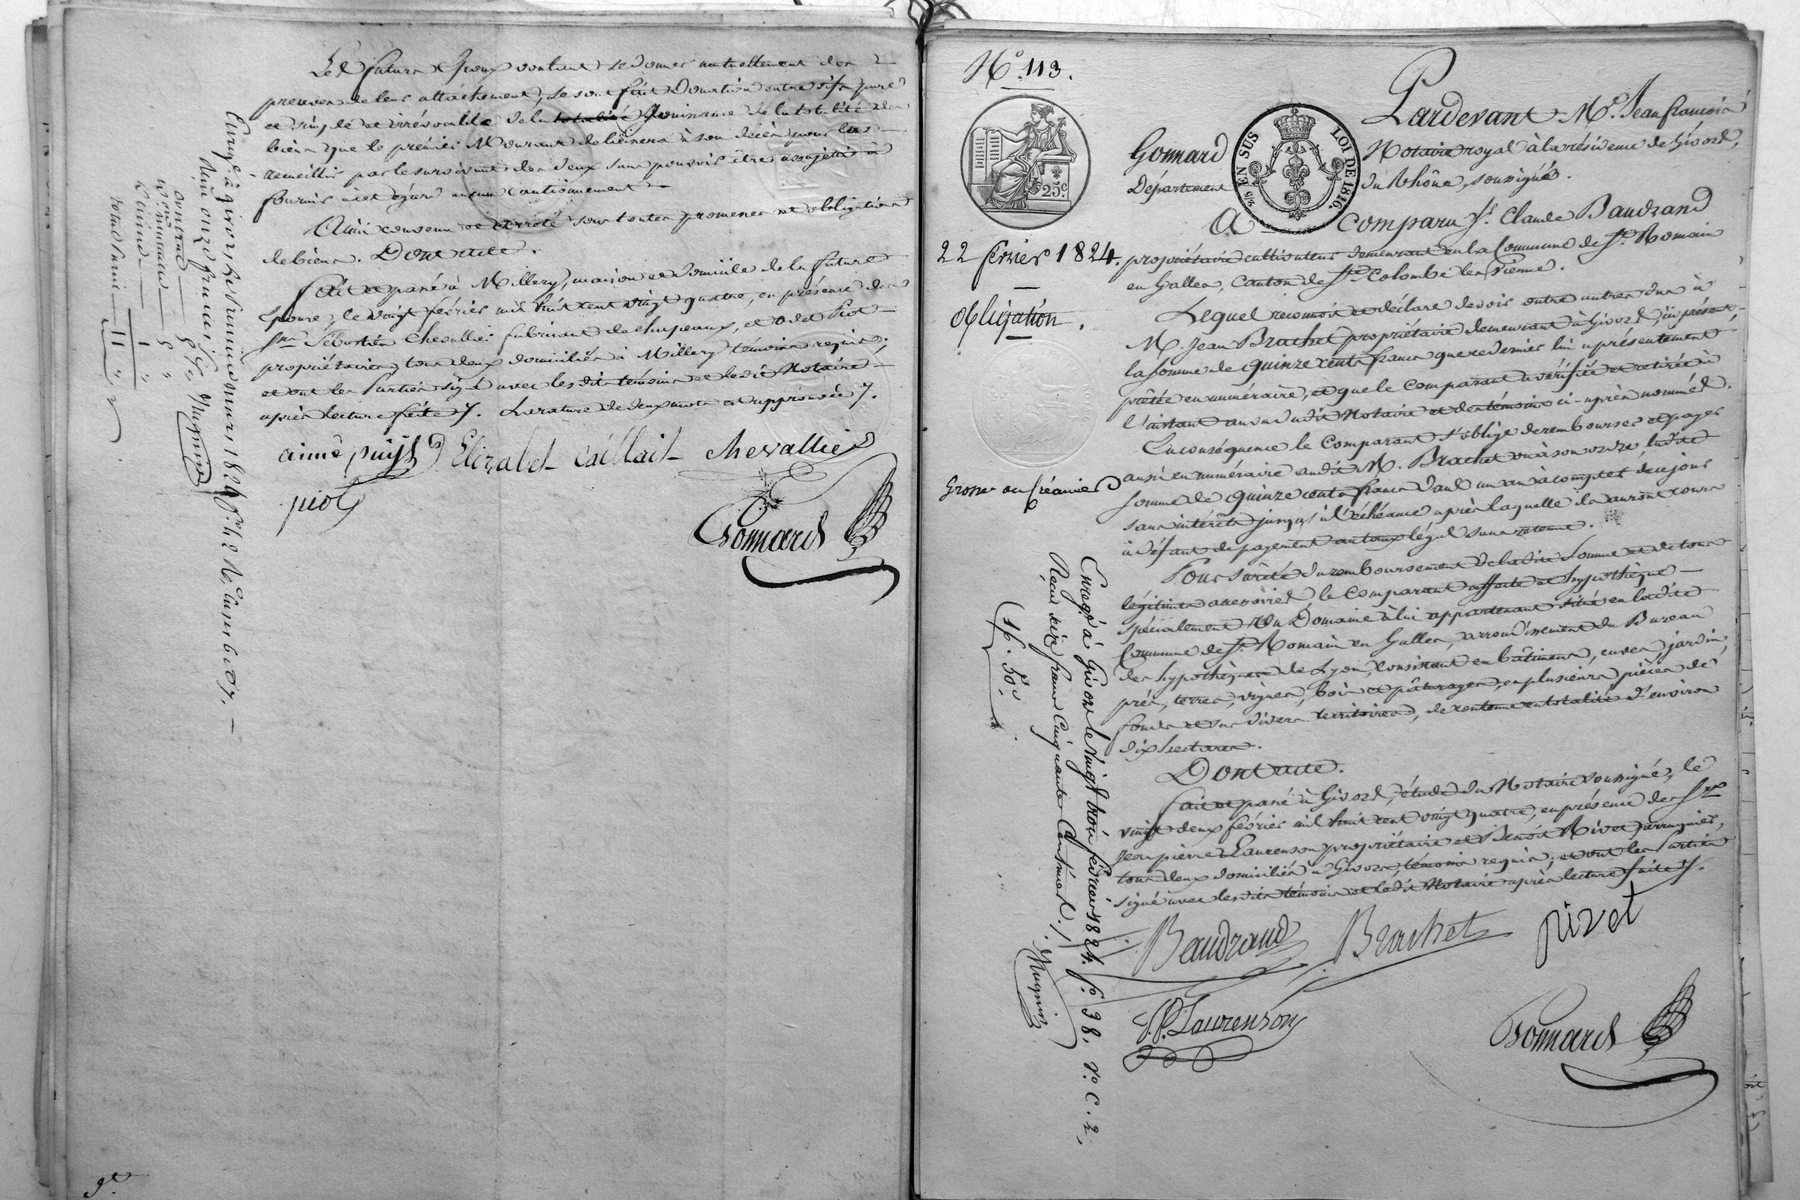 Les futurs Epoux voulant se donner mutuellement des
preuves de leur attachement, se sont fait Donation entre vifs pure
et simple et irrévocable de la totalité Jouissance de la totalité des
biens que le premier Mourant délaissera à son décès pour les
recueillir par le survivant des deux sans pouvoir être assujetti à
fournir à cet égard aucun Cautionnement
Ainsi convenu et arrêté sous toutes promesses et obligations
de biens. Dont acte.
fait et passé à Millery, maison et Domicile de la future
Epouse, le vingt février mil huit cent vingt quatre, en présence des
Srs Sébastien Chevallier fabricant de chapeaux, et Piot
propriétaire, tous deux domiciliés à Millery témoins requis;
et ont les Parties signé avec les dits témoins et ledit Notaire
après lecture faite. Le rature de deux mots est approuvée.
aimé puys Elizabet Caillait chevallier
piot
Gonnard
Enregé à Givors, le mars 1824, fo
Reçu onze francs
Contrat 5
Donation 5
Dixième 1
total 11
Nugnin
3e
No. 113.
25c
EN SUS
LOI DE 1816
22 février 1824.
Obligation.
Grosse au Créancier
Pardevant Me. Jean françois
Gonnard Notaire royal à la résidence de Givors,
Département du Rhône, soussigné.
A Comparu Sr. Claude Baudrand
propriétaire cultivateur demeurant en la Commune de St. Romain
en Gallier, Canton de Ste Colombe les Vienne.
Lequel reconnoit et déclare devoir entre autres dus à
M. Jean Brachet propriétaire demeurant à Givors, ici présent,
la somme de quinze cents francs que ce dernier lui a présentement
prêtée en numéraire, et que le Comparant a vérifiée et retirée à
l'instant au vu dudit Notaire et des témoins ci-après nommés.
En conséquence le Comparant s'oblige de rembourser et payer
aussi en numéraire audit M. Brachet ou à son ordre ladite
somme de quinze cents francs dans un an à compter de ce jour
sans intérêts jusqu'à l'échéance après laquelle ils auront cours
à défaut de payement au taux légal sans retenue.
Pour sûreté du remboursement de ladite Somme et de tous
légitimes accessoires le Comparant affecte et hypothèque
spécialement Un Domaine à lui appartenant situé en ladite
Commune de St. Romain en Gallier, arrondissement du Bureau
des hypothèques de Lyon, consistant en bâtiments, cuves, jardin,
prés, terres, vignes, bois et pâturages, en plusieurs pièces de
fonds et sur divers territoires, de contenue en totalité d'environ
dix hectares.
Dont acte.
fait et passé à Givors, étude du Notaire soussigné, le
vingt deux février mil huit cent vingt quatre, en présence des Srs
Jean pierre Laurenson propriétaire et Benoit Rivet perruquier,
tous deux domiciliés à Givors, témoins requis; et ont les Parties
signé avec les dits témoins et ledit Notaire après lecture faite.
Baudrand Brachet rivet
J.P. Laurenson
Gonnard
Enregé à Givors le vingt trois février 1824. fo. 38. Vo C. 2,
Reçu seize francs Cinquante Centimes.
16f. 50c.
Nugnin